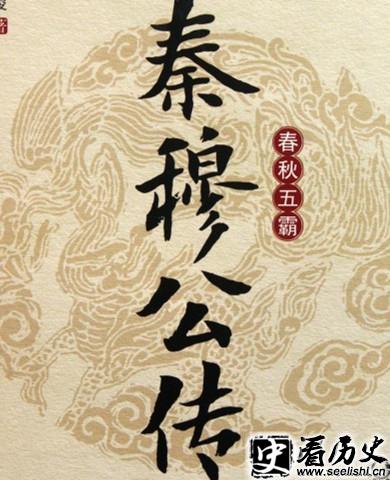 秦穆公传
春秋五霸
史 看历史
www.seelishi.cn